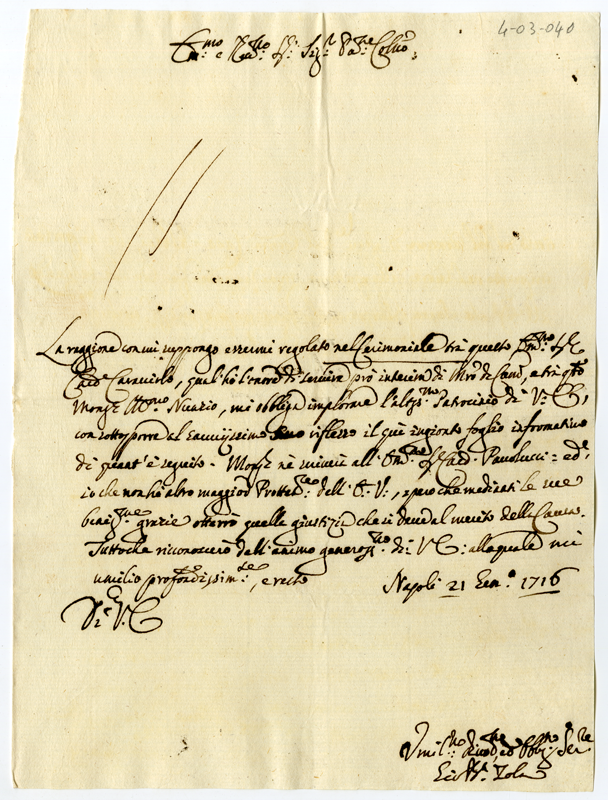 4-03-040
Em:mo e Rev:mo Sig: Sig:r Pa:ne Col:mo
La raggione con cui suppongo essermi regolato nel Cerimoniale trà questo Em:mo Sig:
Card: Caracciolo, quale hò l'onore di servire prò interim di Mro di Cam:, e trà qto
Monsig: Nunzio, mi obbliga implorare l'alt:mo Patrocinio di V: E:,
con sottoporre al saviissimo suo riflesso il quì ingionto foglio infromativo
di quant'è seguito. Monsig: nè scrive all'Em: Sig: Card: Paulucci = ed
io che non hò altro maggior Protter: dell'E: V:, spero che medianti le sue
beni:me grazie otterrò quella giustizia che si deve al merito della Causa.
Tuttoche riconoscerò dall'animo generos:mo di V: E: alla quale mi
umilio profondissim:te, e resto Napoli 21 Gen:o 1716
Di V: E:
Umil:mo Divot: ed Obblig: Ser:re
Gio: Zola